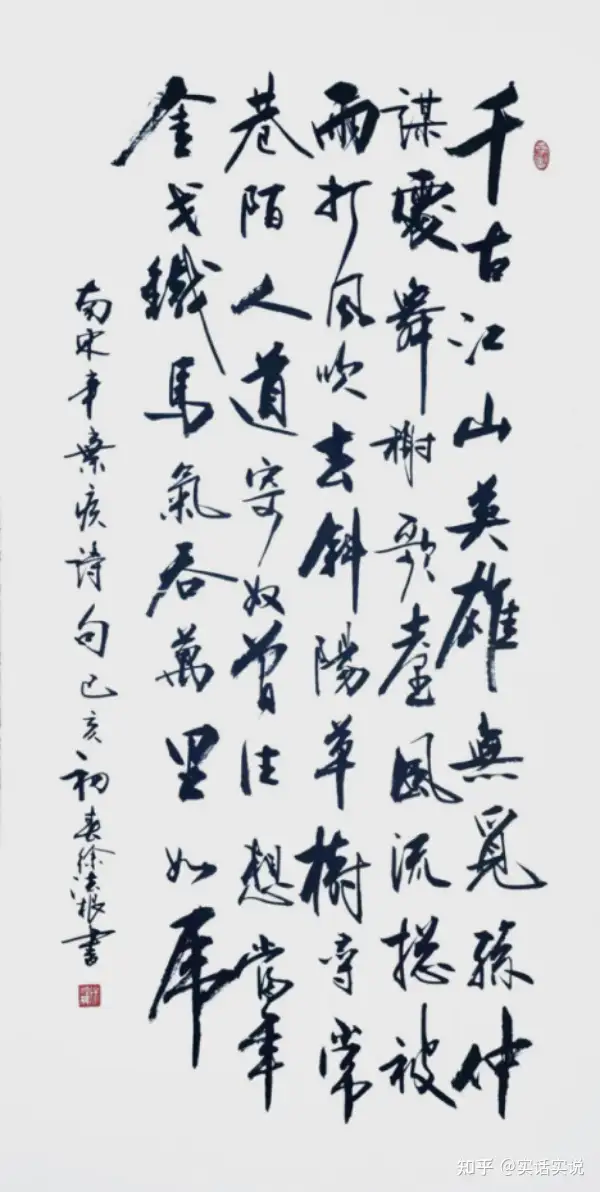 千古江山英雄無覓孫仲
謀處舞榭歌臺風流揔被
雨打風吹去斜陽草樹尋常
巷陌人道寄奴曾住想當年
金戈鐵馬氣吞萬里如虎
南宋辛棄疾詩句己亥初春徐法根書
知乎 @实话实说